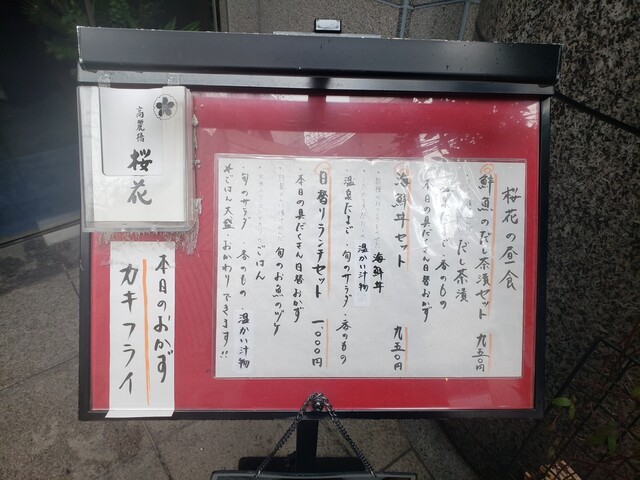 桜花の昼食
鮮魚のだし茶漬セット 九五〇円
だし茶漬
香のもの
本日の具だくさん日替おかず
海鮮丼セット 九五〇円
海鮮丼
温かい汁物
温泉たまご・旬のサラダ・香のもの
日替りランチセット 一、〇〇〇円
本日の具だくさん日替おかず
旬のお魚のヅケ
ごはん
・旬のサラダ ・香のもの 温かい汁物
※ごはん大盛・おかわりできます!!
高麗橋
桜花
本日のおかず
カキフライ